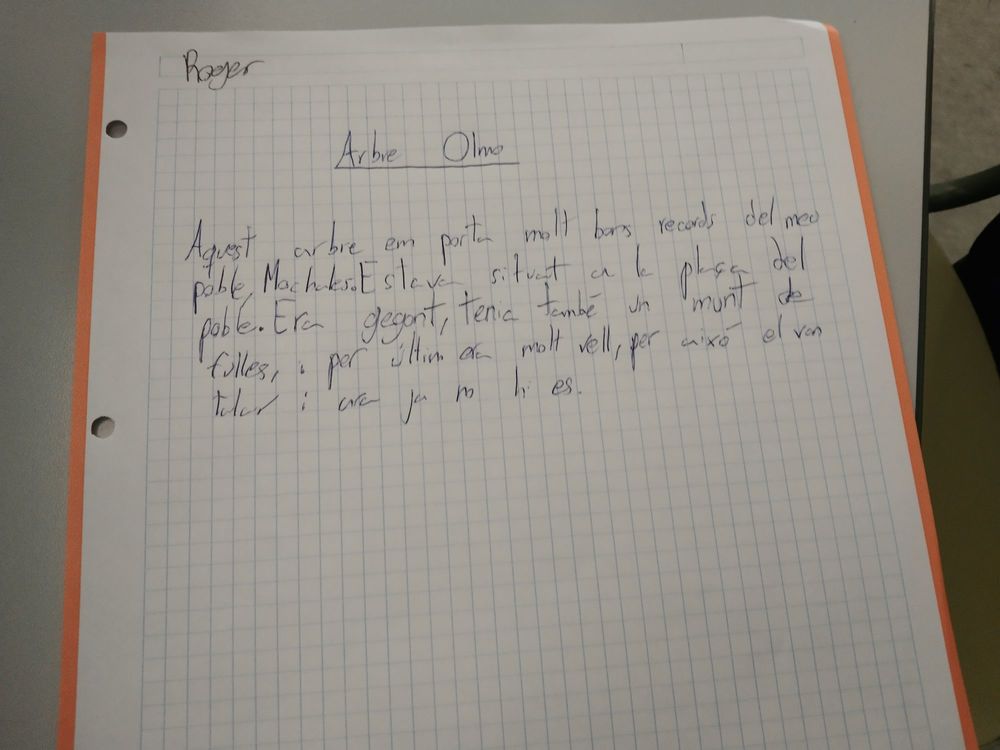 Roger
Arbre Olmo
Aquest arbre em porta molt bons records del meu
poble, Machales. Estava situat a la plaça del
poble. Era gegant, tenia també un munt de
fulles, i per últim era molt vell, per aixó el van
talar i ara ja no hi es.